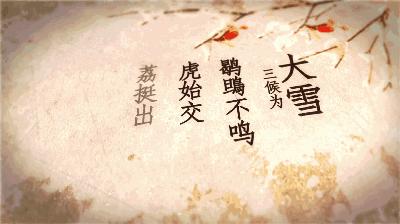 大雪
三候为
鹖鴠不鸣
虎始交
荔挺出